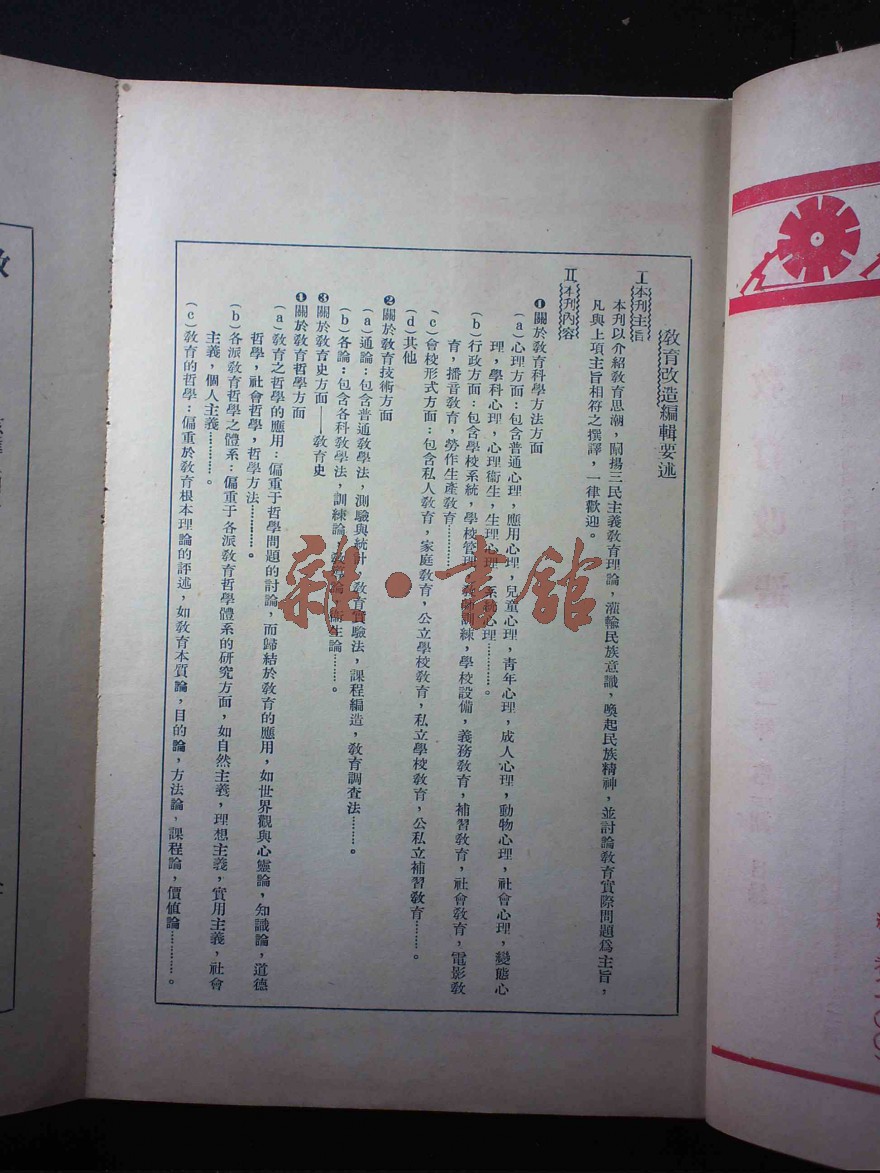 教育改造編輯要述
Ⅰ本刊主旨
本刊以介紹教育思潮，闡揚三民主義教育理論，灌輸民族意識，喚起民族精神，並討論教育實際問題爲主旨，
凡與上項主旨相符之撰譯，一律歡迎。
Ⅱ本刊內容
❶關於教育科學方法方面
(a)心理方面：包含普通心理，應用心理，兒童心理，靑年心理，成人心理，動物心理，社會心理，變態心
理，學科心理，心理衞生，生理心理，系統心理…………。
(b)行政方面：包含學校系統，學校管理，敎師訓練，學校設備，義務敎育，補習敎育，社會敎育，電影敎
育，播音敎育，勞作生產敎育…………。
(c)會校形式方面：包含私人敎育，家庭敎育，公立學校敎育，私立學校敎育，公私立補習敎育………。
(d)其他
❷關於敎育技術方面
(a)通論：包含普通敎學法，測驗與統計，敎育實驗法，課程編造，敎育調查法………。
(b)各論：包含各科敎學法，訓練論，論，衞生論………。
❸關於敎育史方面——敎育史
❹關於敎育哲學方面
(a)敎育之哲學的應用：偏重于哲學問題的討論，而歸結於敎育的應用，如世界觀與心靈論，知識論，道德
哲學，社會哲學，哲學方法…………。
(b)各派敎育哲學之體系：偏重于各派敎育哲學體系的研究方面，如自然主義，理想主義，實用主義，社會
主義，個人主義…………。
(c)敎育的哲學：偏重於敎育根本理論的評述，如敎育本質論，目的論，方法論，課程論，價値論…………。
雜·書館